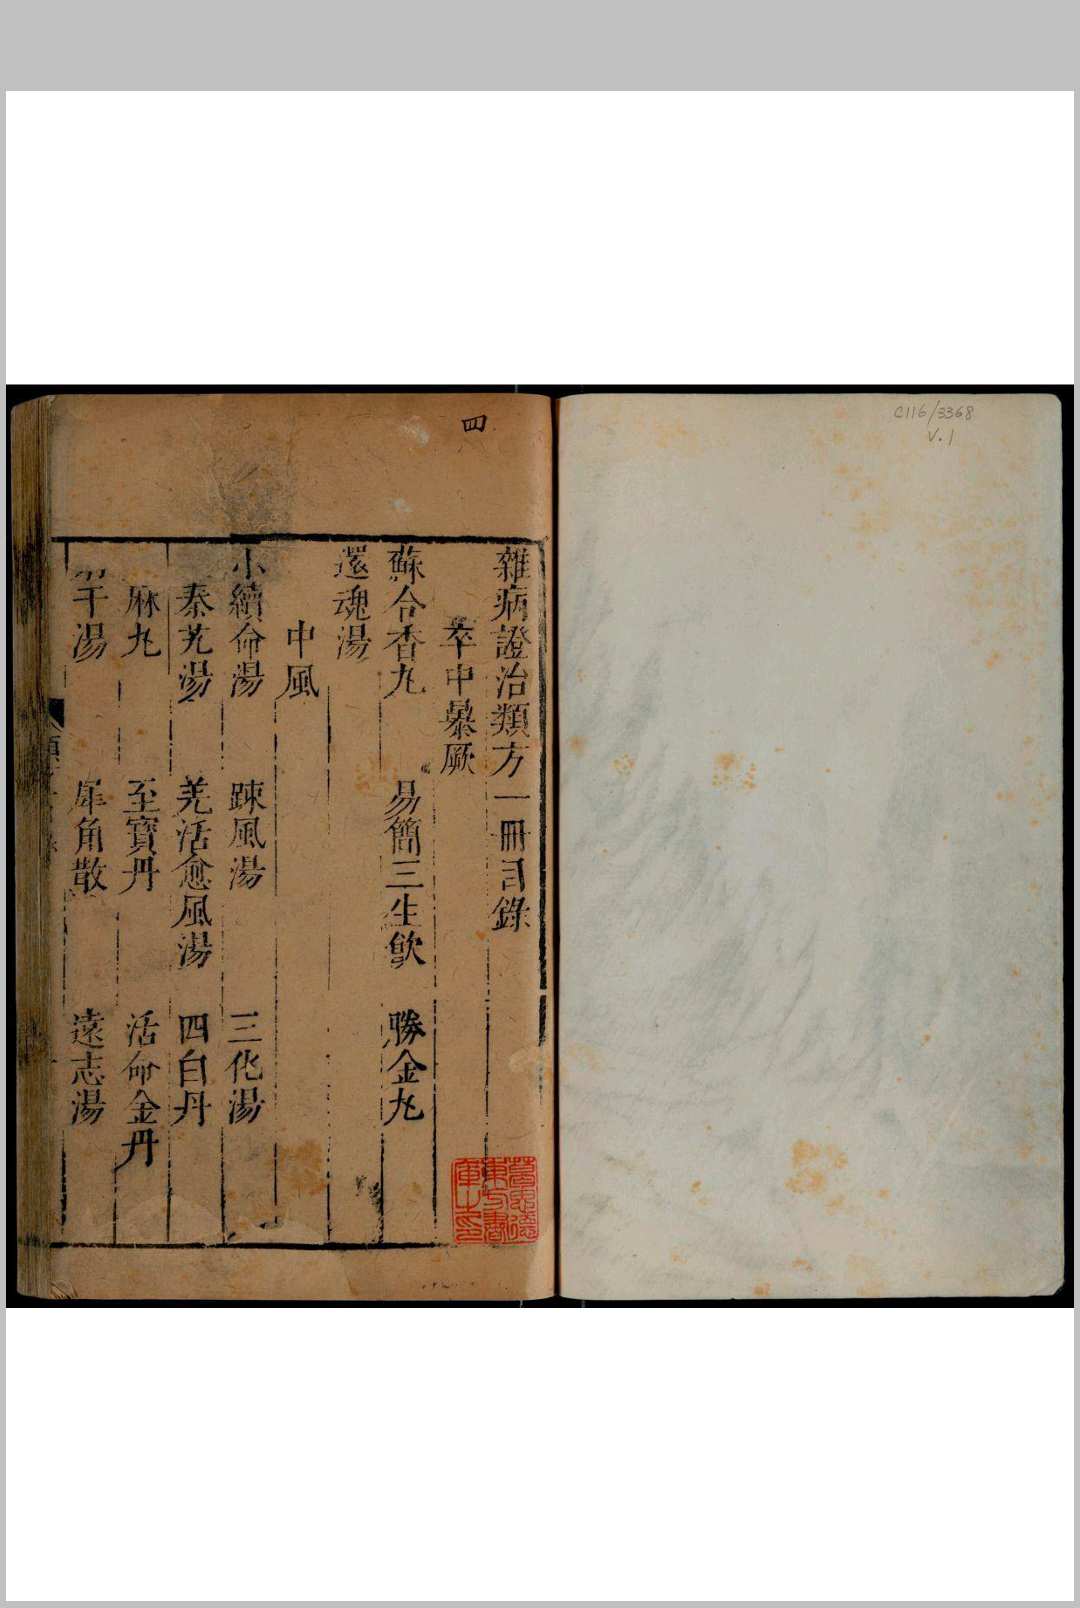 C116/3368
V.1
四
雜病證治類方一冊目錄
卒中暴厥
蘇合香丸 易簡三生飲 勝金丸
還魂湯
中風
小續命湯 踈風湯 三化湯
秦艽湯 羌活愈風湯 四白丹
麻丸 至寶丹 活命金丹
干湯 犀角散 遠志湯